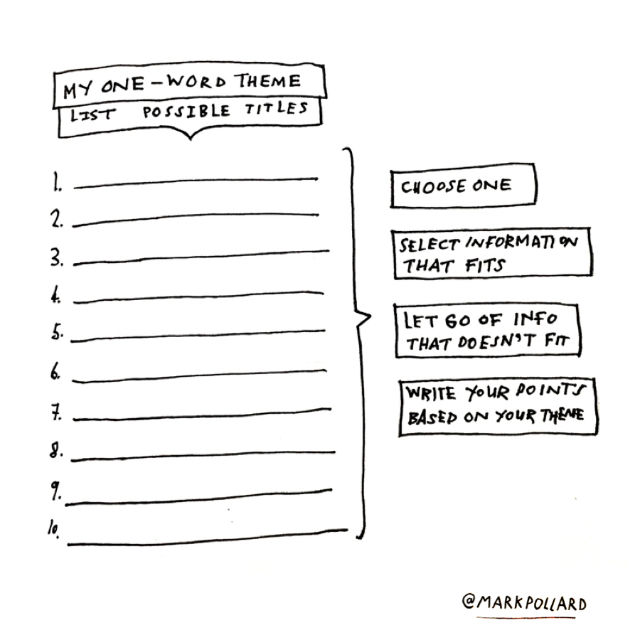 MY ONE-WORD THEME
LIST POSSIBLE TITLES
1.
2.
3.
4.
5.
6.
7.
8.
9.
10.
CHOOSE ONE
SELECT INFORMATION
THAT FITS
LET GO OF INFO
THAT DOESN'T FIT
WRITE YOUR POINTS
BASED ON YOUR THEME
@MARKPOLLARD